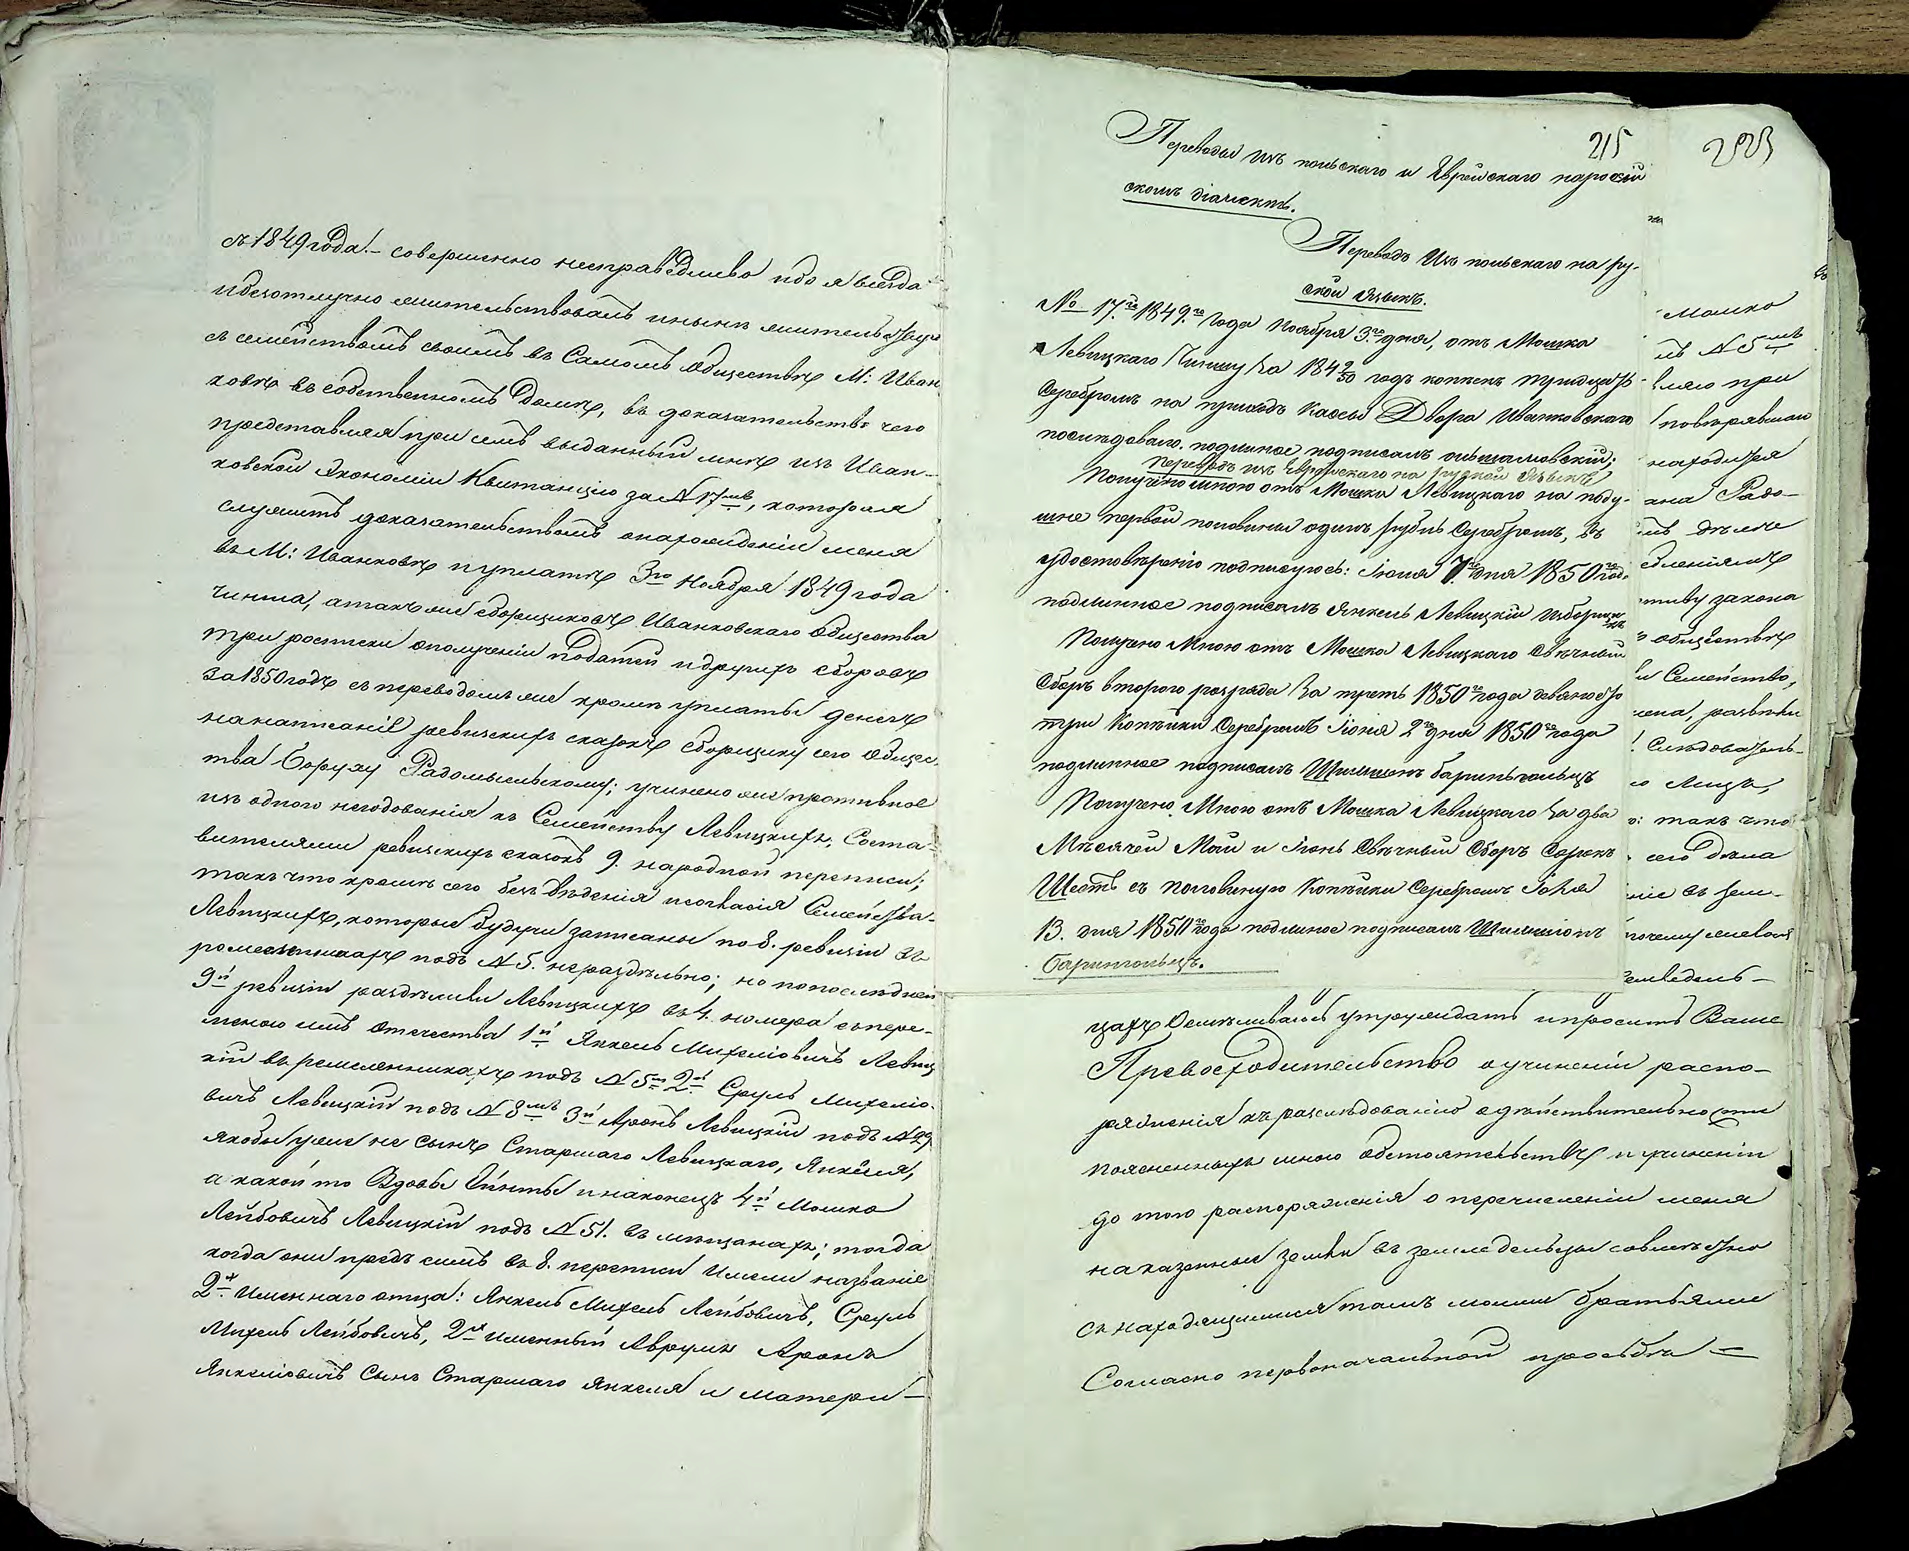 съ 1849 года. – совершенно несправедливо ибо я всегда
и безотлучно жительствовалъ и нынѣ жительствую
съ семействомъ своимъ въ Самомъ Обществѣ М: Иван
ковѣ въ собственномъ Домѣ, въ доказательство чего
представляя при семъ выданный мнѣ изъ Иван-
ковской Экономіи Квитанцію за N 17мъ, которая
служитъ доказательствомъ о нарожденіи меня
въ М: Иванковѣ и уплатѣ 3го Ноября 1849 года
чинша, а также сборщиковъ Иванковскаго Общества
три росписки о полученіи Податей и другихъ сборовъ
за 1850 годъ съ переводомъ же кромѣ уплаты денегъ
на написаніе ревизскихъ сказокъ сборщику его Общес-
тва Боруху Радомысельскому; учинено же противное
изъ одного негодованія къ Семейству Левицкихъ, Соста-
вителями ревизскихъ сказокъ 9. народной переписи;
такъ что кромѣ сего безъ вѣденія и согласія Семейства
Левицкихъ, которые будучи записаны по 8. ревизіи въ
ремесленникахъ подъ N 5. нераздѣльно; но по последней
9й ревизіи раздѣливъ Левицкихъ въ 4. номера съ пере-
меною имъ отечества 1й Янкель Михеліовичъ Левиц
кій въ ремесленникахъ подъ N 5мъ 2й Сруль Михеліо-
вичъ Левицкій подъ N 8мъ 3й Аронъ Левицкій подъ N 29
якобы уже не сынъ Старшаго Левицкаго, Янкеля,
а какой то Вдовы и наконецъ 4й Мошко
Лейбовичъ Левицкій подъ N 51. въ мѣщанахъ; тогда
когда они предъ симъ въ 8. переписи Имели названіе
2хъ Именнаго отца: Янкель Михель Лейбовичъ, Сруль
Михель Лейбовичъ, 2хъ именный Аврумъ Аронъ
Янкеліовичъ Сынъ Старшаго Янкеля и матери –
215
203
Переводы изъ польскаго и Еврейскаго на россій
скомъ діалектѣ.
Переводъ Изъ польскаго на ру-
ской Языкъ.
No 17.го 1849.го года Ноября 3.го дня, отъ Мошка
Левицкаго Чиншу за 1849/50 годъ копѣекъ тридцать
Серебромъ на приходъ Кассы Двора Иванковскаго
последовало. подлинное подписалъ
Переводъ изъ Еврейскаго на рускій Языкъ
Получено мною отъ Мошка Левицкаго на поду-
шне первой половины одинъ рубль Серебромъ, въ
удостовѣреніе подписуюсь: Іюня 7го дня 1850го года
подлинное подписалъ Янкель Левицкій
Получено Мною отъ Мошка Левицкаго Свѣчный
Сборъ второго розряда За треть 1850го года девяносто
три Копѣйки Серебромъ Іюня 2го дня 1850го года
подлинное подписалъ
Получено Мною отъ Мошка Левицкаго за два
Мѣсяцей Май и Іюнь Свѣчный Сборъ Сорокъ
Шесть съ половиною Копѣйки Серебромъ
13. дня 1850го года подлиное подписалъ
Мошко
N 5мъ
при
находится
ана Радо-
дѣлѣ
закона
обществѣ
Семейство,
Следователь-
Лицъ,
такъ что
сего Дѣла
въ зем-
емледель-
цахъ Осмѣливаюсь утруждать и просить Ваше
Превосходительство о учиненіи распо-
ряженія къ разследованію о дѣйствительности
поясненныхъ мною обстоятельствъ и учиненіи
до того распоряженія о перечисленіи меня
на казенныя земли въ земледельцы совмѣстно
съ находящимися тамъ моими братьями
Согласно первоначальной просьбы =